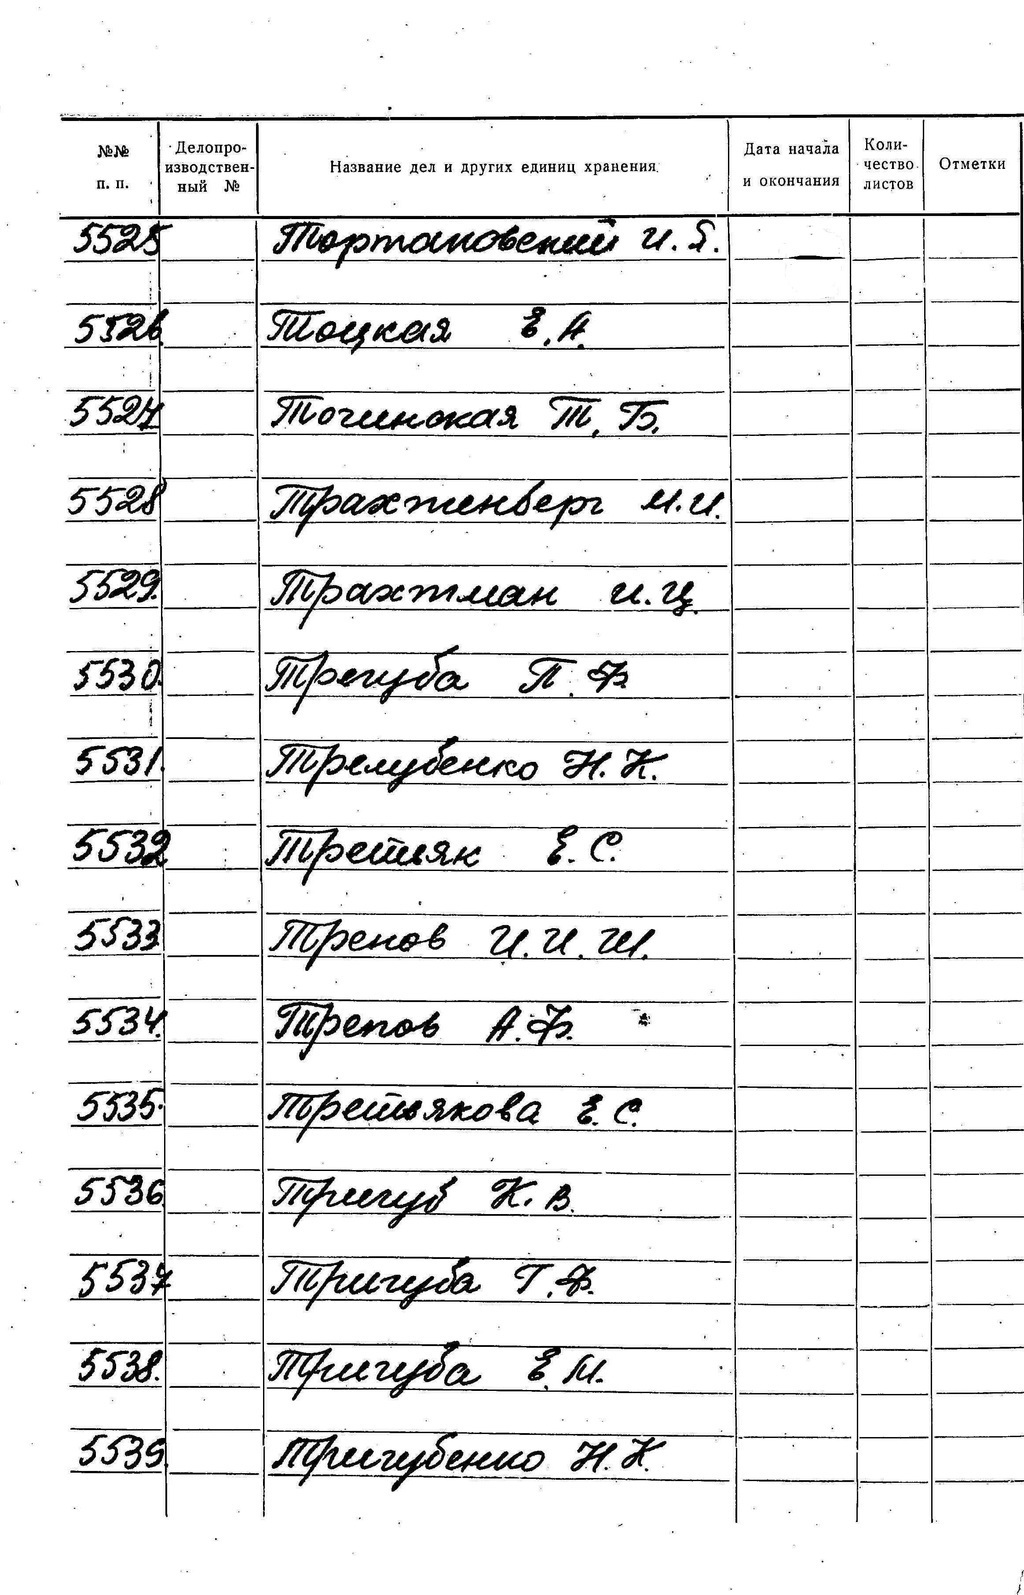 №№ п. п. Делопроизводственный № Название дел и других единиц хранения. Дата начала и окончания Количество листов Отметки
5525 Тортановский И. Я.
5526 Тоцкая Е. А.
5527 Точинская Т. Б.
5528 Трахтенберг М. И.
5529. Трахтман И. Ц.
5530. Трегуба П. Ф.
5531. Трелубенко Н. К.
5532 Третьяк Е. С.
5533 Трепов И. И. Ш.
5534. Трепов А. Ф. *
5535. Третьякова Е. С.
5536 Тригуб К. В.
5537 Тригуба Г. Ф.
5538. Тригуба Е. М.
5539 Тригубенко Н. К.